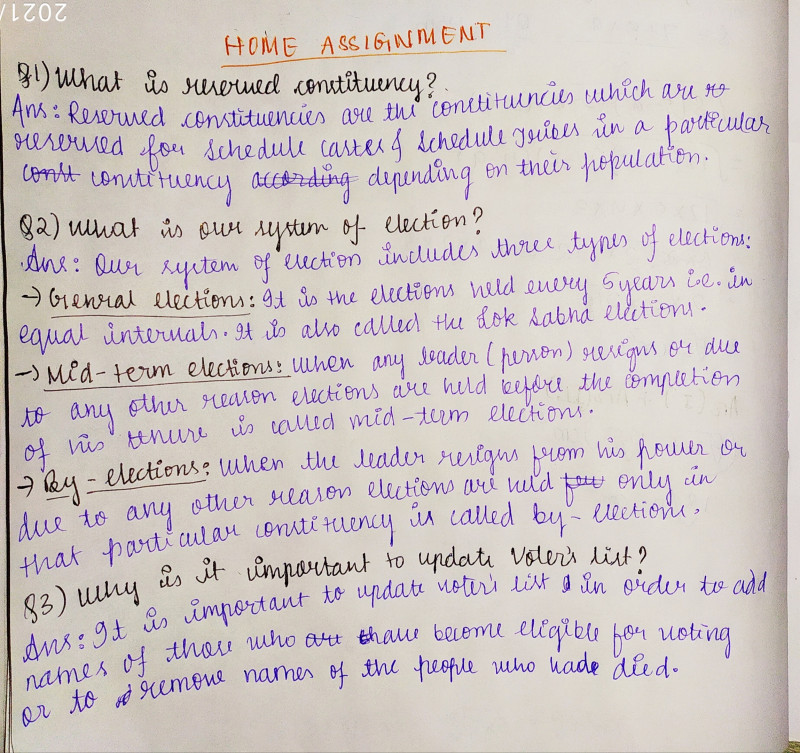 1202/
HOME ASSIGNMENT
Q1) What is reserved constituency?
Ans: Reserved constituencies are the constituencies which are re
reserved for Schedule castes & Schedule Tribes in a particular
const constituency according depending on their population.
Q2) What is our system of election?
Ans: Our system of election includes three types of elections:
→ Genral elections: It is the elections held every 5 years i.e. in
equal intervals. It is also called the Lok Sabha elections.
→ Mid-term elections: When any leader (person) resigns or due
to any other reason elections are held before the completion
of his tenure is called mid-term elections.
→ By-elections: When the leader resigns from his power or
due to any other reason elections are held for only in
that particular constituency is called by-elections.
Q3) Why is it important to update Voter's list?
Ans: It is important to update voter's list in order to add
names of those who are have become eligible for voting
or to remove names of the people who had died.